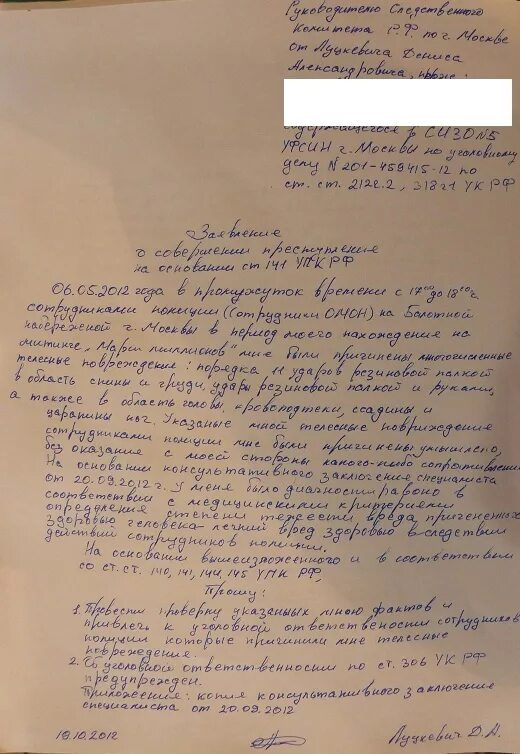 Руководителю Следственного
комитета Р.Ф. по г. Москве
от Луцкевича Дениса
Александровича,
содержащегося в СИЗО №5
УФСИН г. Москвы по уголовному
делу №201-459415-12 по
ст. ст. 212 ч.2, 318 ч1 УК РФ
Заявление
о совершении преступление
на основании ст 141 УПК РФ
06.05.2012 года в промужуток времени с 17⁰⁰ до 18⁰⁰ч.
сотрудниками полиции ((отрудники ОМОН) на Болотной
набережной г. Москвы в период моего нахождение на
митинге „Марш миллионов" мне были пригинены многочисленные
телесные повреждение: порядка 11 ударов резиновой палкой
в область спины и груди, удары резиновой палкой и руками,
а также в область головы, кровоподтеки, ссадины и
царапины ног. Указаные мной телесные повриждение
сотрудниками полиции мне были пригинены умышлено,
без оказание с моей стороны какого-либо сопротивления
На основании консультативного заключение специалиста
от 20.09.2012 г. У меня было диагностировано в
соответствии с медицинскими критериями
определния степени тяжести вреда, пригененного
здоровью геловека – легкий вред здоровью вследствии
действий сотрудников полиции.
На основании вышеизложенного и в соответствии
со ст. ст. 140, 141, 144, 145 УПК РФ,
Прошу:
1. Провести проверку указанных мною фактов и
привлечь к уголовной ответственности сотрудников
полиции которые пригинили мне телесные
повреждение.
2. Об уголовной ответственности по ст. 306 УК РФ
предупрежден.
Приложения: копия консультативного заключение
специалиста от 20.09.2012
19.10.2012 Луцкевич Д.А.